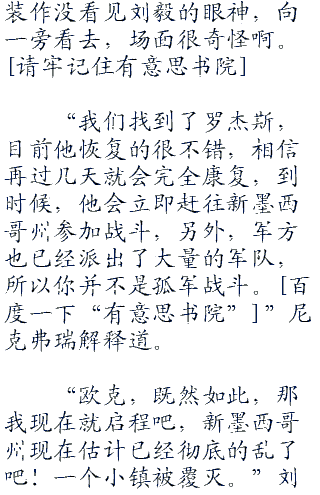 装作没看见刘毅的眼神，向
一旁看去，场面很奇怪啊。
[请牢记住有意思书院]
“我们找到了罗杰斯，
目前他恢复的很不错，相信
再过几天就会完全康复，到
时候，他会立即赶往新墨西
哥州参加战斗，另外，军方
也已经派出了大量的军队，
所以你并不是孤军战斗。[百
度一下“有意思书院”]”尼
克弗瑞解释道。
“欧克，既然如此，那
我现在就启程吧，新墨西哥
州现在估计已经彻底的乱了
吧！一个小镇被覆灭。”刘